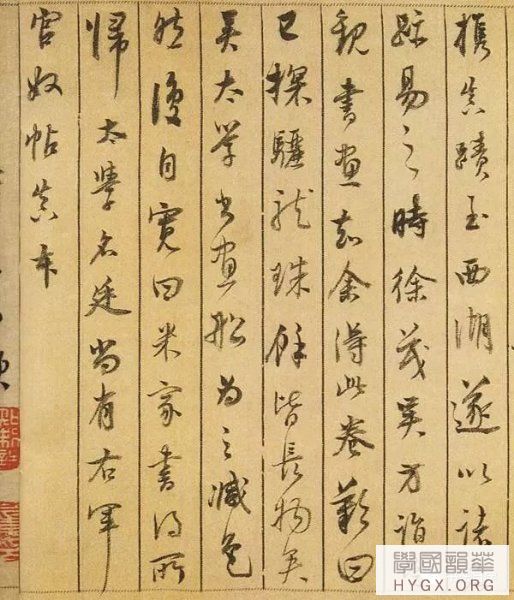 攜真蹟至西湖遂以諸
跡易之時徐茂吳方詣
觀書畫知余得此卷歎曰
已探驪龍珠餘皆長物矣
吳太學書畫船為之減色
然後自寬曰米家書得所
歸太學名廷尚有右軍
官奴帖真本
學國韻華
HYGX.ORG